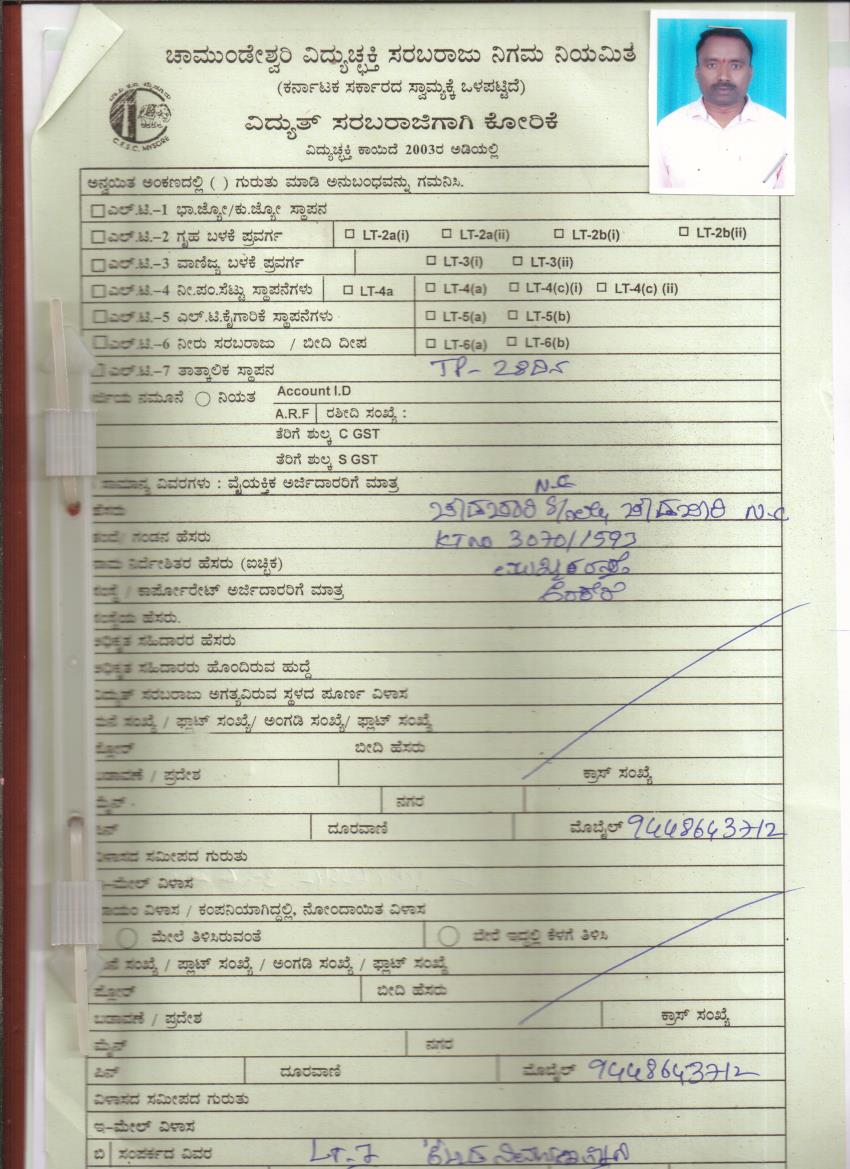 ಚಾಮುಂಡೇಶ್ವರಿ ವಿದ್ಯುಚ್ಛಕ್ತಿ ಸರಬರಾಜು ನಿಗಮ ನಿಯಮಿತ
(ಕರ್ನಾಟಕ ಸರ್ಕಾರದ ಸ್ವಾಮ್ಯಕ್ಕೆ ಒಳಪಟ್ಟಿದೆ)
ವಿದ್ಯುತ್ ಸರಬರಾಜಿಗಾಗಿ ಕೋರಿಕೆ
C.E.S.C. MYSORE
ವಿದ್ಯುಚ್ಛಕ್ತಿ ಕಾಯಿದೆ 2003ರ ಅಡಿಯಲ್ಲಿ
ಅನ್ವಯಿತ ಅಂಕಣದಲ್ಲಿ ( ) ಗುರುತು ಮಾಡಿ ಅನುಬಂಧವನ್ನು ಗಮನಿಸಿ.
ಎಲ್.ಟಿ.-1 ಭಾ.ಜ್ಯೋ/ಕು.ಜ್ಯೋ ಸ್ಥಾಪನ
ಎಲ್.ಟಿ.-2 ಗೃಹ ಬಳಕೆ ಪ್ರವರ್ಗ LT-2a(i) LT-2a(ii) LT-2b(i) LT-2b(ii)
ಎಲ್.ಟಿ.-3 ವಾಣಿಜ್ಯ ಬಳಕೆ ಪ್ರವರ್ಗ LT-3(i) LT-3(ii)
ಎಲ್.ಟಿ.-4 ನೀ.ಪಂ.ಸೆಟ್ಟು ಸ್ಥಾಪನೆಗಳು LT-4a LT-4(a) LT-4(c)(i) LT-4(c) (ii)
ಎಲ್.ಟಿ.-5 ಎಲ್.ಟಿ.ಕೈಗಾರಿಕೆ ಸ್ಥಾಪನೆಗಳು LT-5(a) LT-5(b)
ಎಲ್.ಟಿ.-6 ನೀರು ಸರಬರಾಜು / ಬೀದಿ ದೀಪ LT-6(a) LT-6(b)
ಎಲ್.ಟಿ.-7 ತಾತ್ಕಾಲಿಕ ಸ್ಥಾಪನ TP- 28ದಿನ
ನಮೂನೆ ನಿಯತ Account I.D
A.R.F ರಶೀದಿ ಸಂಖ್ಯೆ :
ತೆರಿಗೆ ಶುಲ್ಕ C GST
ತೆರಿಗೆ ಶುಲ್ಕ S GST
ಸಾಮಾನ್ಯ ವಿವರಗಳು : ವೈಯಕ್ತಿಕ ಅರ್ಜಿದಾರರಿಗೆ ಮಾತ್ರ
ಹೆಸರು
ಗಂಡನ ಹೆಸರು KT no 3070/1593
ನಿರ್ದೇಶಿತರ ಹೆಸರು (ಐಚ್ಛಿಕ)
/ ಕಾರ್ಪೋರೇಟ್ ಅರ್ಜಿದಾರರಿಗೆ ಮಾತ್ರ
ಹೆಸರು.
ಸಹಿದಾರರ ಹೆಸರು
ಸಹಿದಾರರು ಹೊಂದಿರುವ ಹುದ್ದೆ
ಸರಬರಾಜು ಅಗತ್ಯವಿರುವ ಸ್ಥಳದ ಪೂರ್ಣ ವಿಳಾಸ
ಸಂಖ್ಯೆ / ಫ್ಲಾಟ್ ಸಂಖ್ಯೆ/ ಅಂಗಡಿ ಸಂಖ್ಯೆ/ ಫ್ಲಾಟ್ ಸಂಖ್ಯೆ
ಬೀದಿ ಹೆಸರು
/ ಪ್ರದೇಶ ಕ್ರಾಸ್ ಸಂಖ್ಯೆ
ನಗರ
ದೂರವಾಣಿ ಮೊಬೈಲ್ 9448643712
ವಿಳಾಸದ ಸಮೀಪದ ಗುರುತು
ಇ-ಮೇಲ್ ವಿಳಾಸ
ವಿಳಾಸ / ಕಂಪನಿಯಾಗಿದ್ದಲ್ಲಿ, ನೋಂದಾಯಿತ ವಿಳಾಸ
ಮೇಲೆ ತಿಳಿಸಿರುವಂತೆ ಬೇರೆ ಇದ್ದಲ್ಲಿ ಕೆಳಗೆ ತಿಳಿಸಿ
ಸಂಖ್ಯೆ / ಪ್ಲಾಟ್ ಸಂಖ್ಯೆ / ಅಂಗಡಿ ಸಂಖ್ಯೆ / ಫ್ಲಾಟ್ ಸಂಖ್ಯೆ
ಬೀದಿ ಹೆಸರು
ಬಡಾವಣೆ / ಪ್ರದೇಶ ಕ್ರಾಸ್ ಸಂಖ್ಯೆ
ಮೈನ್ ನಗರ
ಪಿನ್ ದೂರವಾಣಿ ಮೊಬೈಲ್ 9448643712
ವಿಳಾಸದ ಸಮೀಪದ ಗುರುತು
ಇ-ಮೇಲ್ ವಿಳಾಸ
ಬಿ ಸಂಪರ್ಕದ ವಿವರ LT-7